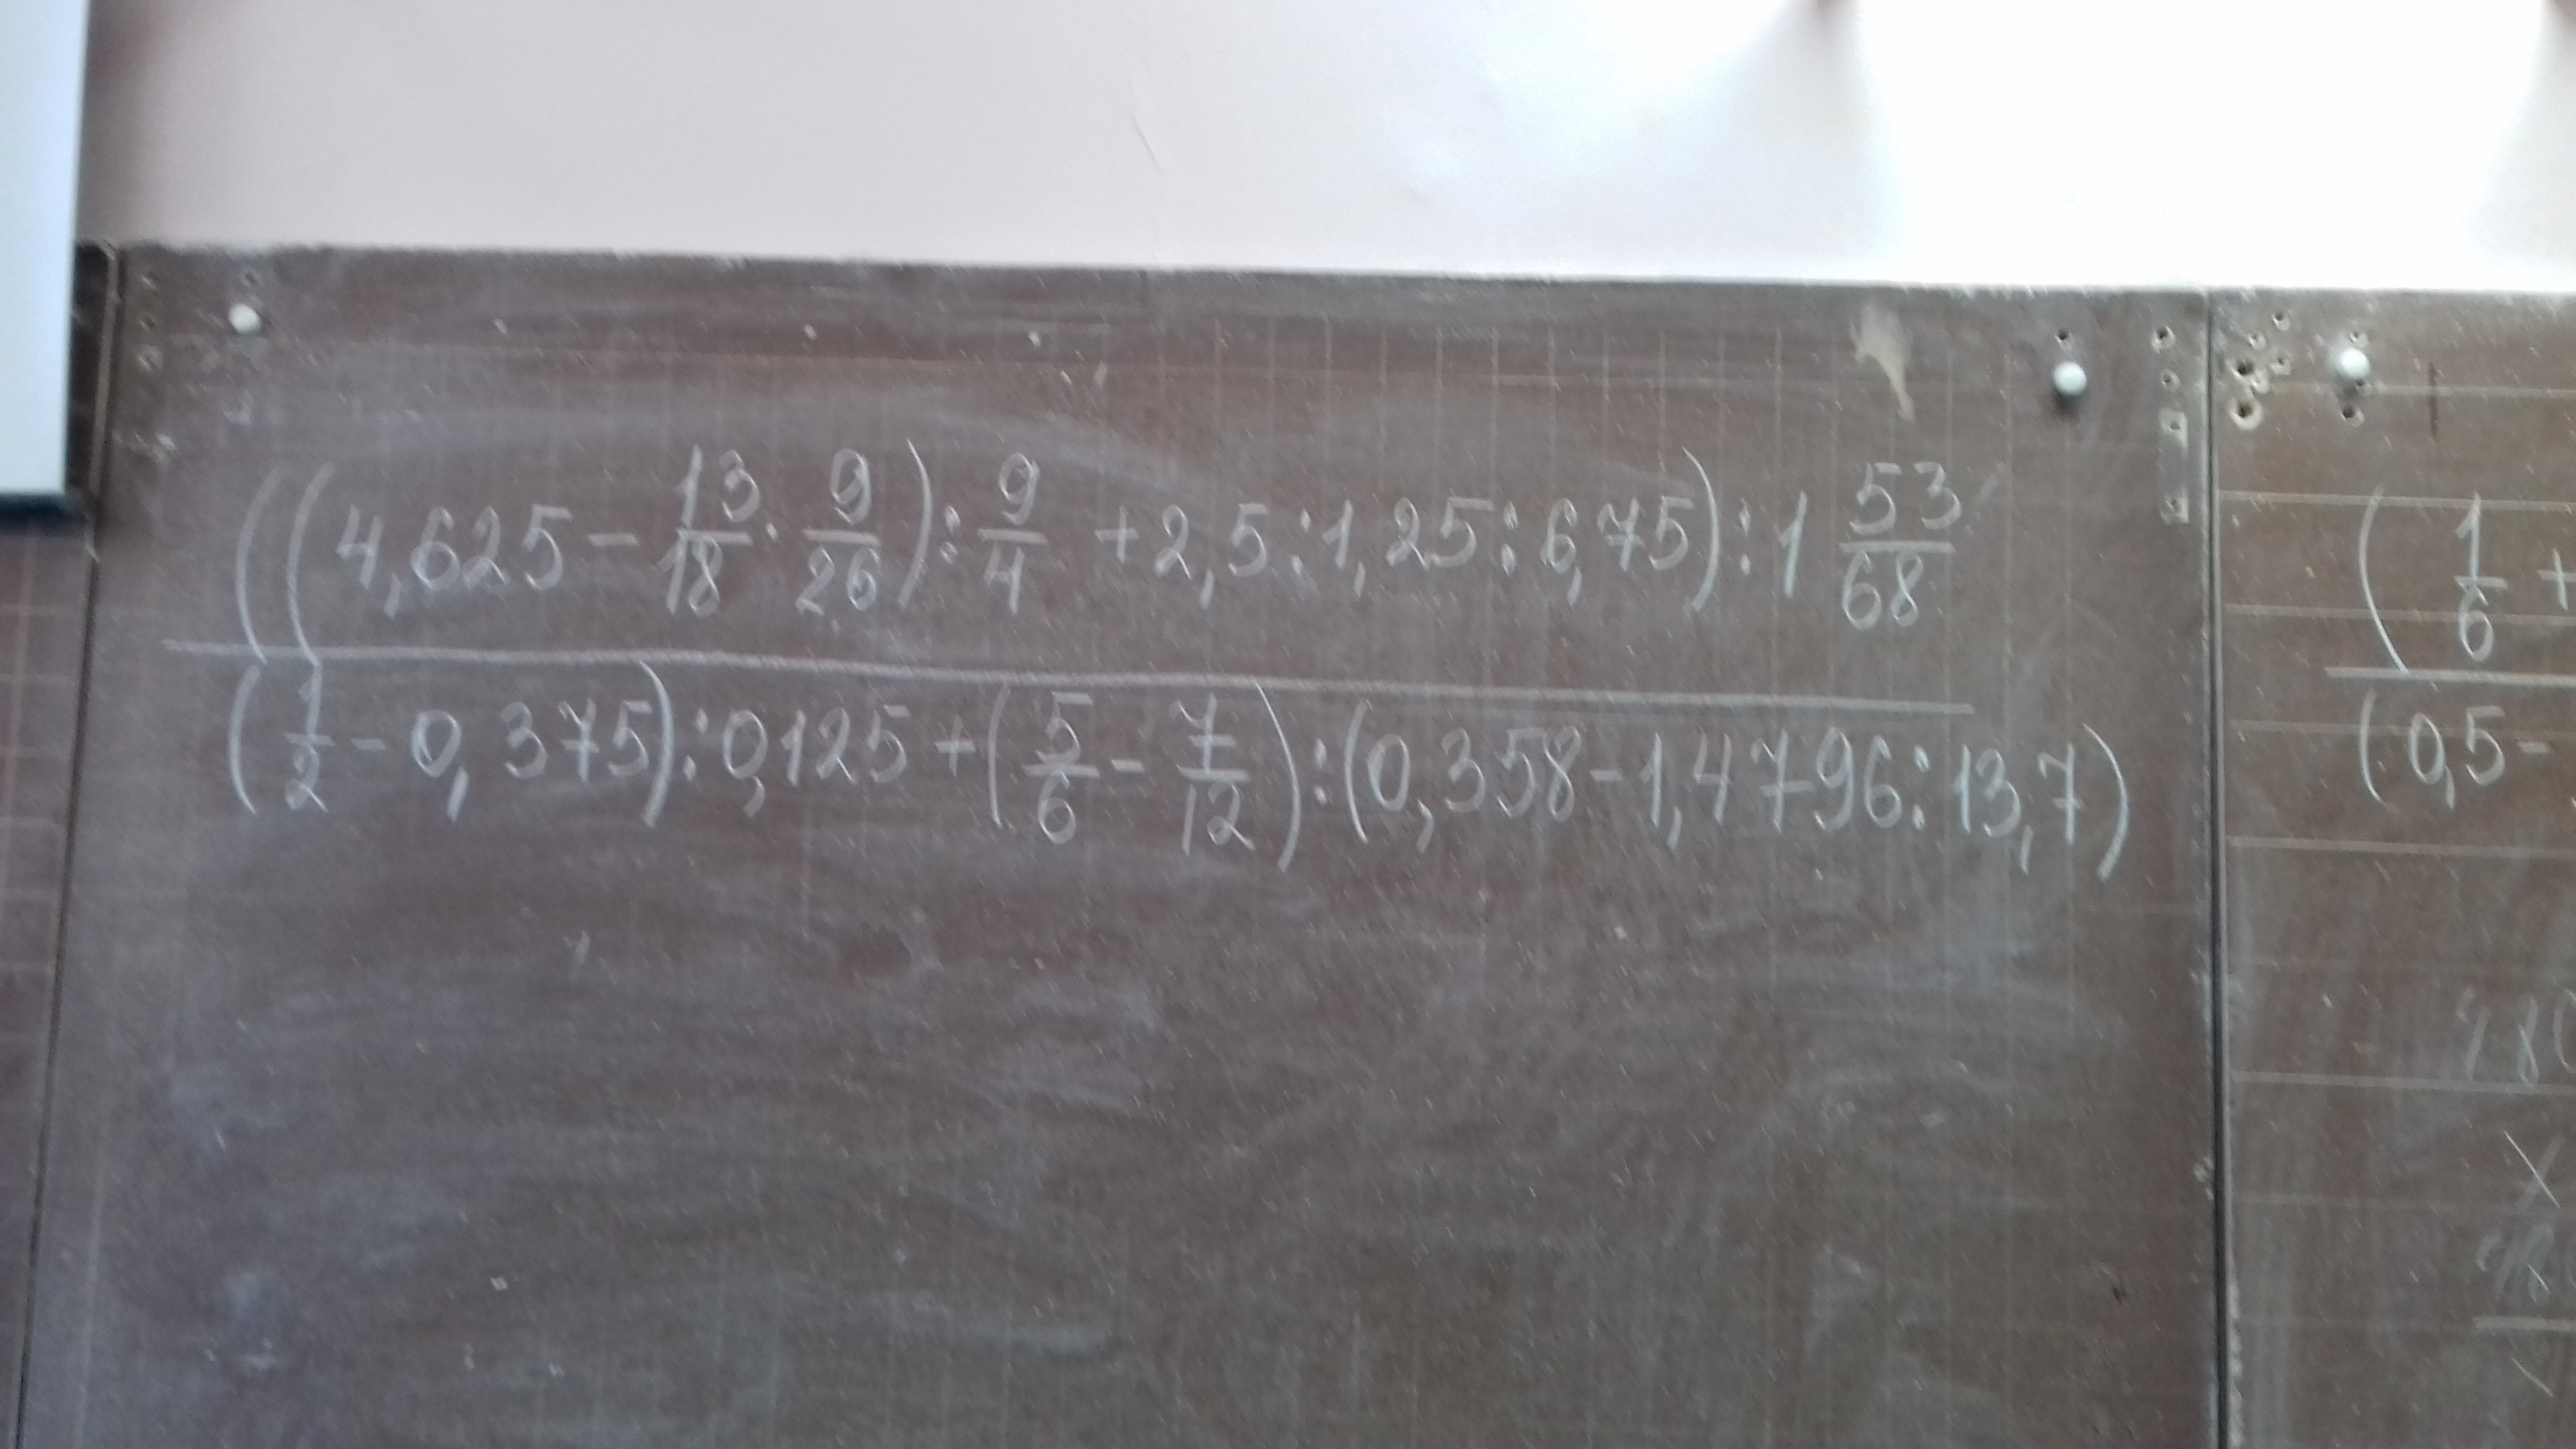 ((4,625 - 13/18 · 9/26) : 9/4 + 2,5 : 1,25 : 6,75) : 1 53/68
(1/2 - 0,375) : 0,125 + (5/6 - 7/12) : (0,358 - 1,4796 : 13,7)
( 1/6 +
(0,5 -